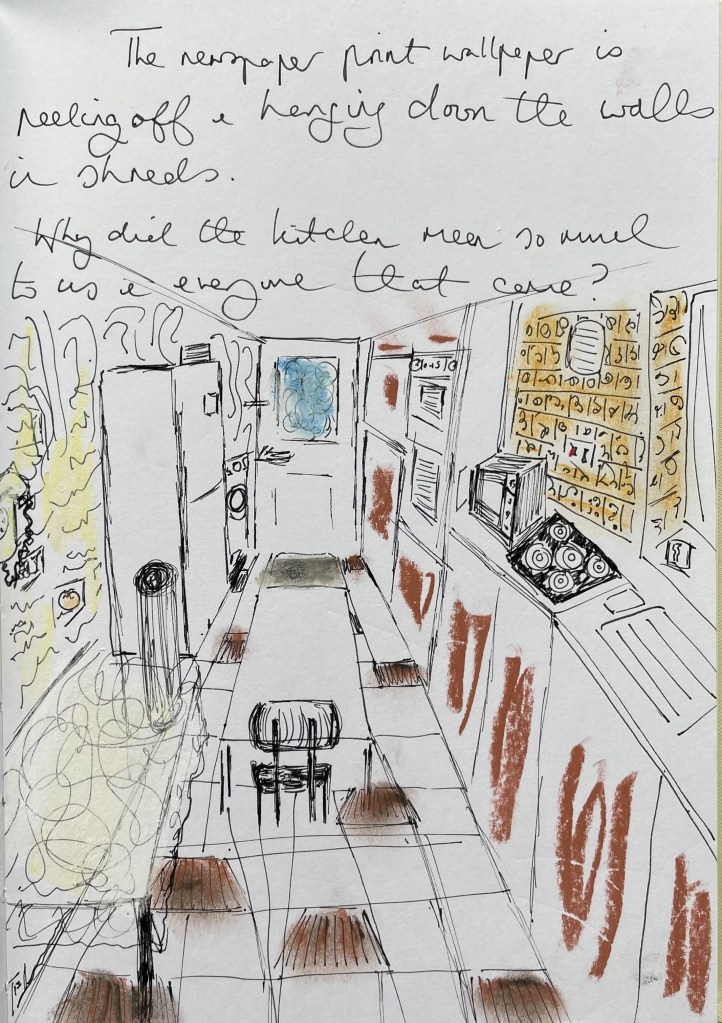 The newspaper print wallpaper is
peeling off & hanging down the walls
in shreds.
Why did the kitchen mean so much
to us & everyone that came?